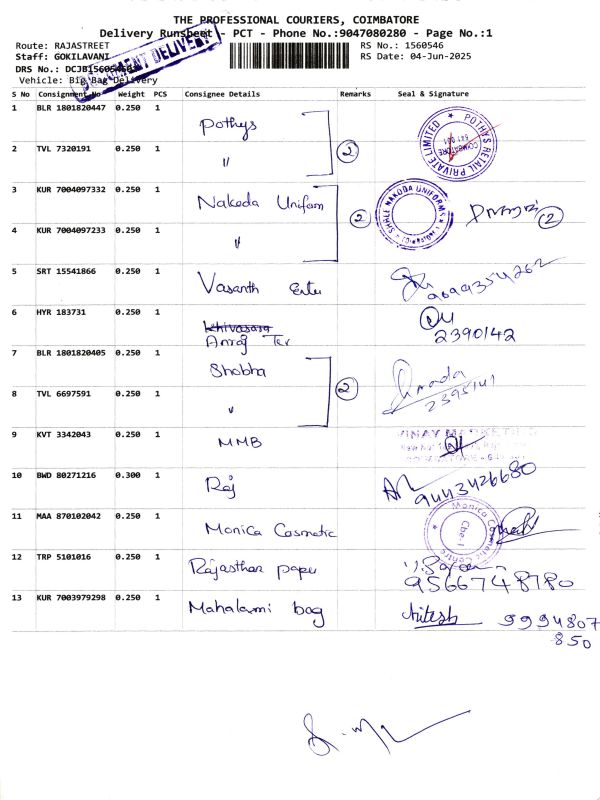 THE PROFESSIONAL COURIERS, COIMBATORE
Delivery Runsheet - PCT - Phone No.:9047080280 - Page No.:1
Route: RAJASTREET
RS No.: 1560546
Staff: GOKILAVANI
RS Date: 04-Jun-2025
DRS No.: DCJB1560546
DELIVERY
Vehicle: Big Bag Delivery
S No Consignment No Weight PCS Consignee Details Remarks Seal & Signature
1 BLR 1801820447 0.250 1 Pothys
POTHYS RETAIL PRIVATE LIMITED COIMBATORE 641 001
2 TVL 7320191 0.250 1 " 2
3 KUR 7004097332 0.250 1 Nakoda Uniform 2
SHREE NAKODA UNIFORMS COIMBATORE
2
4 KUR 7004097233 0.250 1 "
5 SRT 15541866 0.250 1 Vasanth
6 HYR 183731 0.250 1
2390142
7 BLR 1801820405 0.250 1 Shobha
8 TVL 6697591 0.250 1 " 2
2395141
9 KVT 3342043 0.250 1 MMB
VINAY MARKETING
10 BWD 80271216 0.300 1 Raj 9443426680
11 MAA 870102042 0.250 1 Monica Cosmetic
Monica Cosmetic Centre Cbe-1
12 TRP 5101016 0.250 1 Rajasthan paper
9566748780
13 KUR 7003979298 0.250 1 Mahalaxmi bag Hitesh 9994807
850